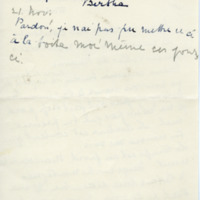 Bertha
21 Nov.
Pardon, je n'ai pas pu mettre ceci
à la boîte moi même ces jours
ci.